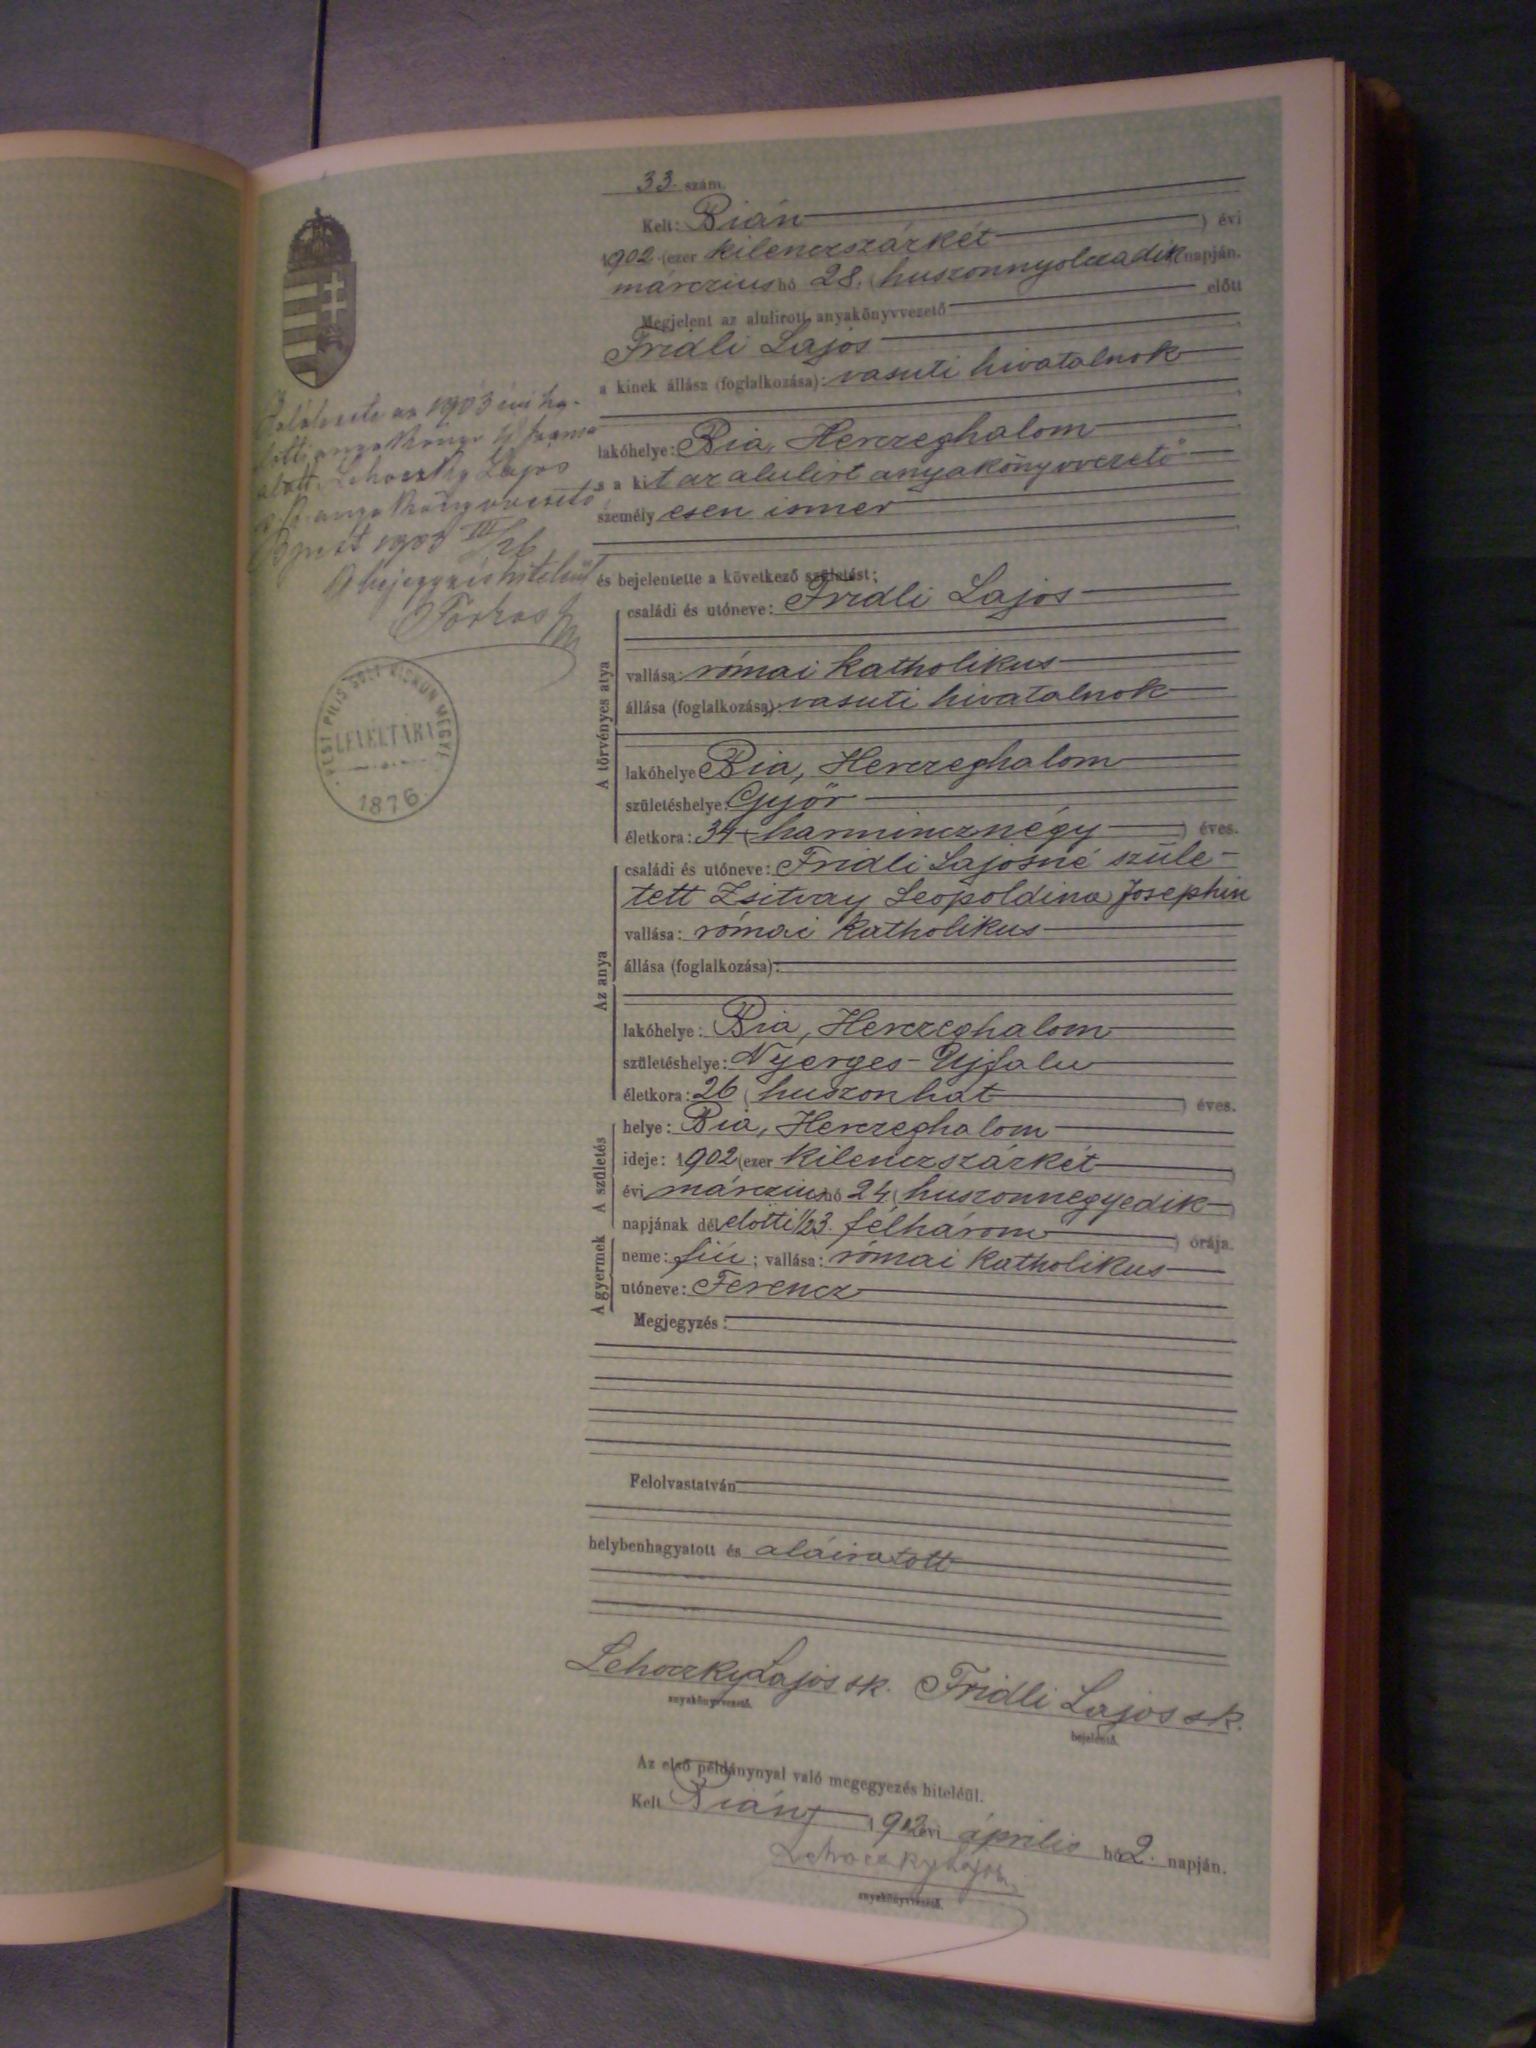 33. szám.
Kelt: Bián
1902 (ezer kilenczszázkét) évi
márczius hó 28. (huszonnyolczadik) napján.
Megjelent az alulirott anyakönyvvezető előtt
Fridli Lajos
a kinek állása (foglalkozása): vasuti hivatalnok
lakóhelye: Bia, Herczeghalom
s a kit az alulirt anyakönyvvezető
személyesen ismer
és bejelentette a következő születést:
A törvényes atya
családi és utóneve: Fridli Lajos
vallása: római katholikus
állása (foglalkozása): vasuti hivatalnok
lakóhelye Bia, Herczeghalom
születéshelye: Győr
életkora: 34 (harmincznégy) éves.
Az anya
családi és utóneve: Fridli Lajosné szüle-
tett Zsitvay Leopoldina Josephin
vallása: római katholikus
állása (foglalkozása):
lakóhelye: Bia, Herczeghalom
születéshelye: Nyerges-Ujfalu
életkora: 26 (huszonhat) éves.
A születés
helye: Bia, Herczeghalom
ideje: 1902 (ezer kilenczszázkét)
évi márczius hó 24 (huszonnegyedik)
napjának délelőtti ½3. félhárom) órája.
A gyermek
neme: fiú; vallása: római katholikus
utóneve: Ferencz
Megjegyzés:
Felolvastatván
helybenhagyatott és aláiratott
Lehoczky Lajos sk. Fridli Lajos sk.
anyakönyvvezető. bejelentő.
Az első példánynyal való megegyezés hiteléül.
Kelt Bián, 1902 évi április hó 2. napján.
Lehoczky Lajos
anyakönyvvezető.
az 1903 évi ha-
lotti anyakönyv
alatt. Lehoczky Lajos
s. k. anyakönyvvezető
Bpest 1903 III/26
A bejegyzés hiteléül
PEST PILIS SOLT KISKUN MEGYE
LEVÉLTÁRA
1876.